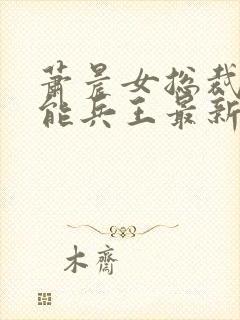 萧晨女总裁
能兵王最新
木齋